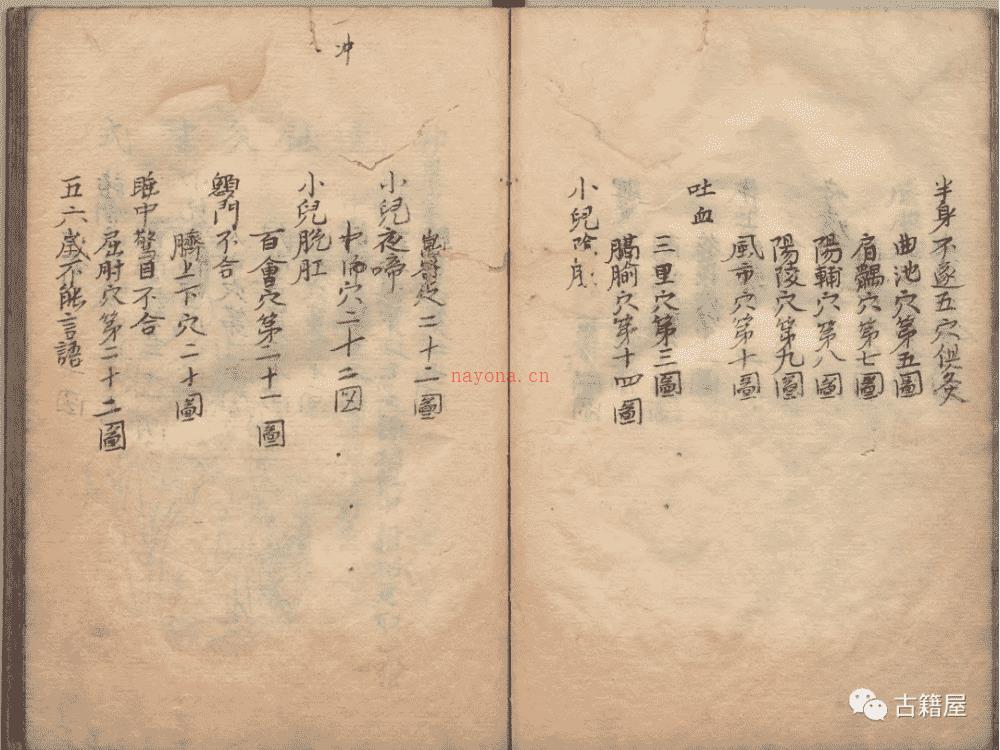 半身不遂五穴俱灸
曲池穴第五圖
肩髃穴第七圖
陽輔穴第八圖
陽陵穴第九圖
風市穴第十圖
吐血
三里穴第三圖
膈腧穴第十四圖
小兒陰
冲
二十二圖
小兒夜啼
穴二十二図
小兒脫肛
百會穴第二十一圖
顖門不合
臍上下穴二十圖
睡中驚目不合
屈肘穴第二十二圖
五六歲不能言語
nayona.cn
古籍屋